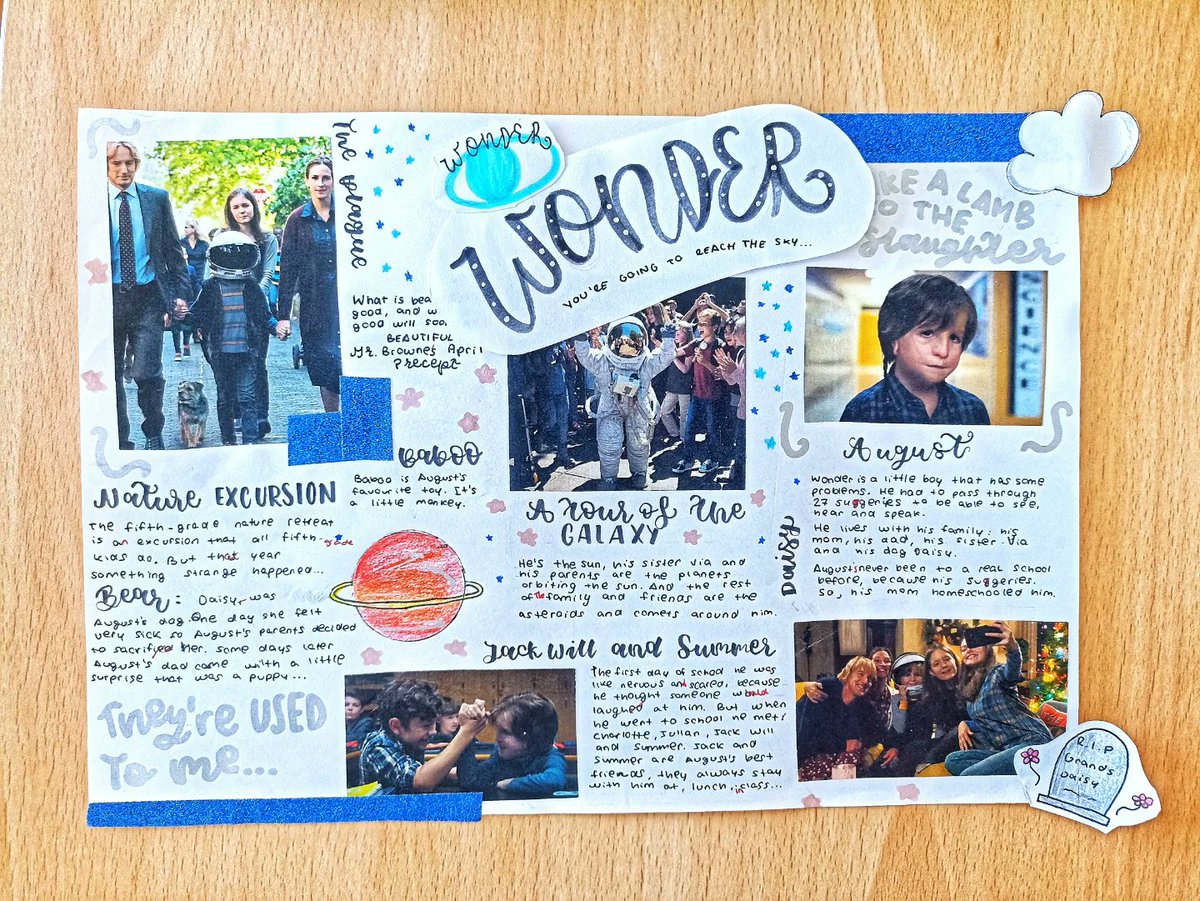 WONDER
WONDER
YOU'RE GOING TO REACH THE SKY...
The plague
What is
good, and
good will
BEAUTIFUL
Mr. Browne's April
Precept
BABOO
Baboo is August's
favourite toy. It's
a little monkey.
Nature EXCURSION
The fifth-grade nature retreat
is an excursion that all fifth-grade
kids do. But that year
something strange happened...
Bear: Daisy, was
August's dog. One day she felt
very sick so August's parents decided
to sacrifice her. some days later
August's dad came with a little
surprise that was a puppy...
They're USED
To me...
A Tour of The
GALAXY
He's the sun, his sister Via and
his parents are the planets
orbiting the sun. And the rest
of the family and friends are the
asteroids and comets around him.
Jack Will and Summer
The first day of school he was
like nervous and scared, because
he thought someone would
laughed at him. But when
he went to school he met:
Charlotte, Julian, Jack Will
and Summer. Jack and
Summer are August's best
friends, they always stay
with him at, lunch, in class...
A LAMB
TO THE
Slaughter
August
Wonder is a little boy that has some
problems. He had to pass through
27 suggeries to be able to see,
hear and speak.
He lives with his family: his
mom, his dad, his sister Via
and his dog Daisy.
August's never been to a real School
before, because his suggeries.
So, his mom homeschooled him.
Daisy
R.I.P
Grand's
Daisy